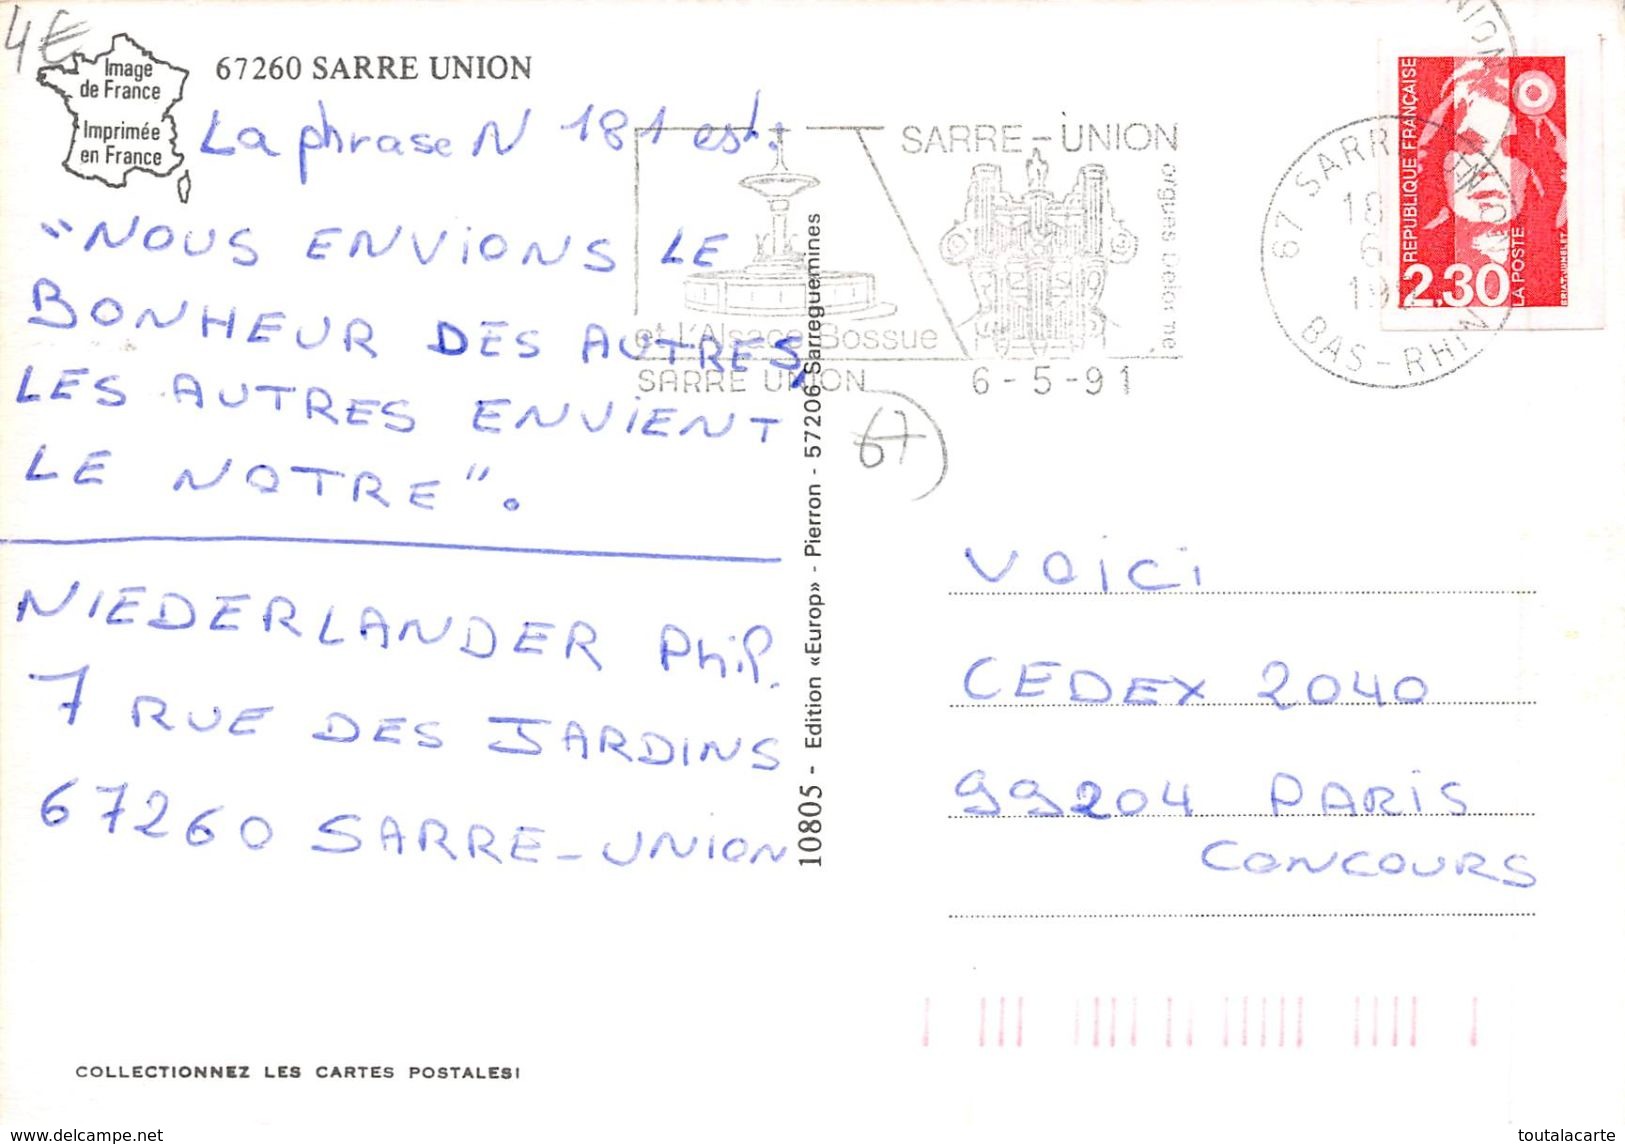 4€
Image
de France
Imprimée
en France
67260 SARRE UNION
La phrase N 181 est:
"NOUS ENVIONS LE
BONHEUR DES AUTRES,
LES AUTRES ENVIENT
LE NOTRE".
NIEDERLANDER Phil.
7 RUE DES JARDINS
67260 SARRE-UNION
COLLECTIONNEZ LES CARTES POSTALES!
10805 - Edition «Europ» - Pierron - 57206 Sarreguemines
SARRE-UNION
et l'Alsace Bossue
SARRE UNION
6-5-91
67
67 SARRE UNION
18
6
BAS-RHIN
REPUBLIQUE FRANÇAISE
2,30
LA POSTE
BRIAT.JUMELET
VOICI
CEDEX 2040
99204 PARIS
CONCOURS
www.delcampe.net
toutalacarte